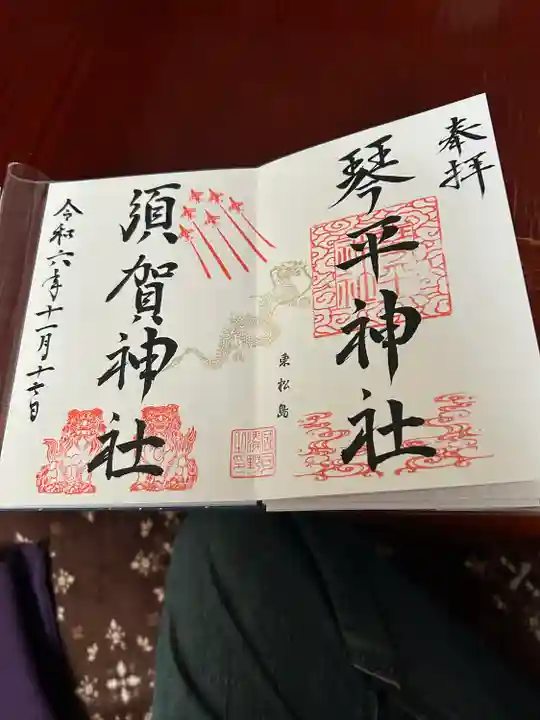 奉拝
琴平神社
東松島
須賀神社
令和六年十一月十七日